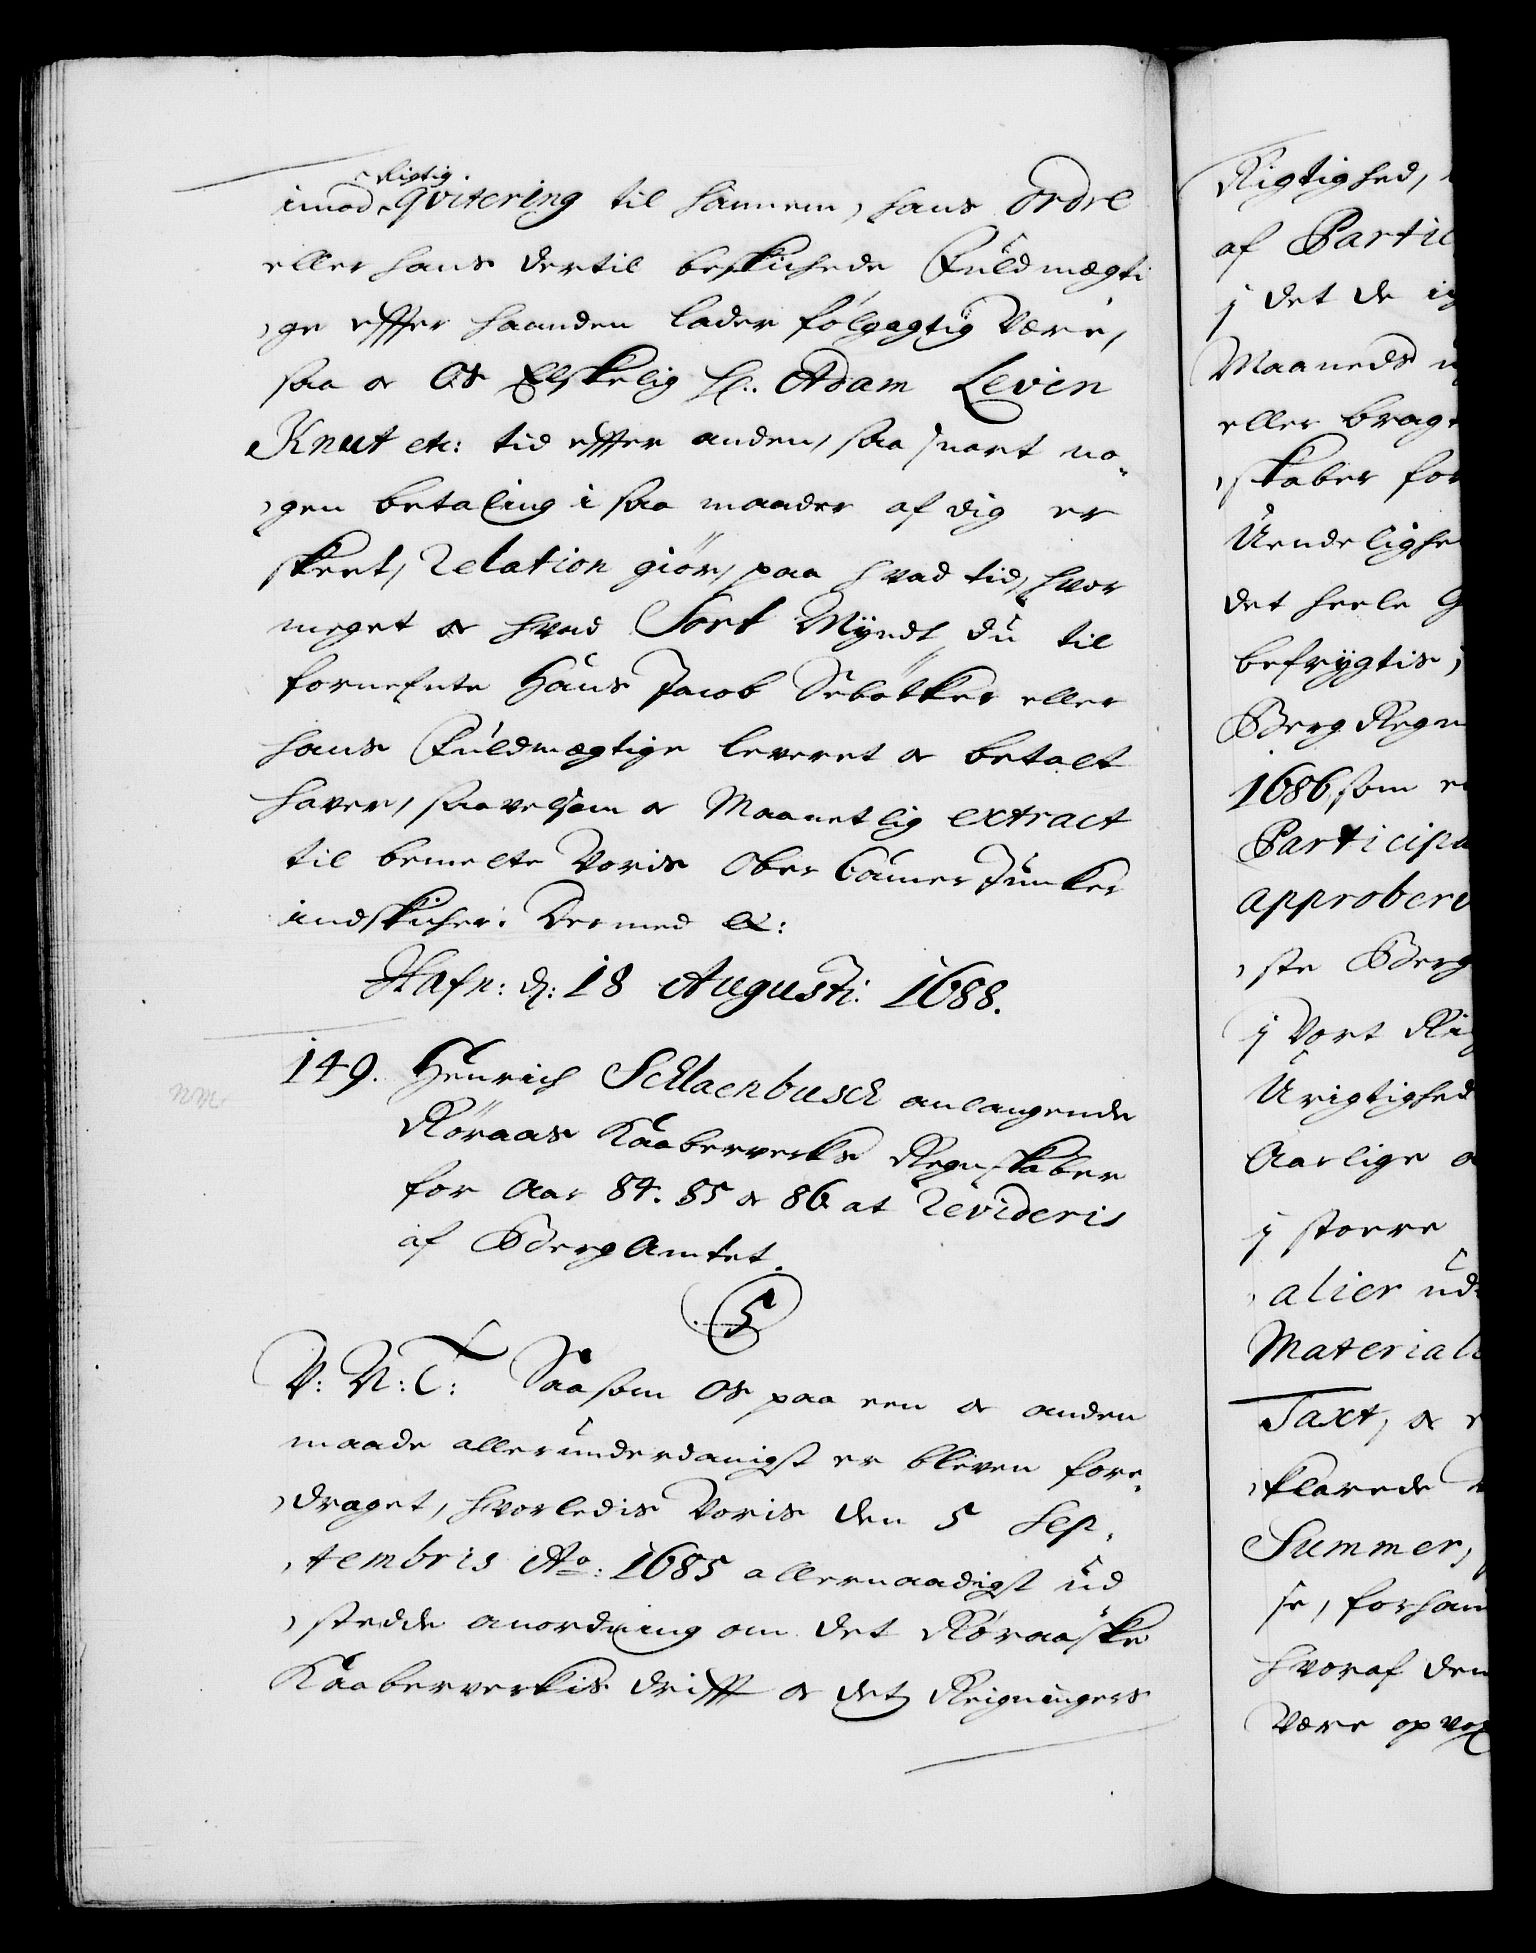 Rigtig
imod Qvitering til hannem, hans Ordre
eller hans dertil beskichede Fuldmægti
ge effter haanden lader følgagtig være,
saa och Os Elskelig Hr. Adam Levin
Knut etc: tid effter anden, saa snart no-
gen betaling i saa maader af dig er
skeet, Relation giör, paa hvad tid, hvor
meget och hvad Sort Myndt du til
fornefnte Hans Jacob Sebötker eller
hans Fuldmægtige leveret och betalt
haver, saavelsom och Maanetlig extract
til bemelte Voris Ober Camer Junker
indskicher. Dermed &:
Hafn: d: 18 Augusti. 1688.
149. Henrich Schlaenbusch anlangende
Röraas Kaaberverks Regnskaber
for Aar 84. 85 och 86 at Revideris
af BergAmtet.
5
V: N: T: Saasom Os paa een och anden
maade allerunderdanigst er bleven fore-
draget, hvorledis Voris den 5 Sep-
tembris Ao: 1685 allernaadigst ud
stedde anordning om det Röraaske
Kaaberverkis drifft och detz Reigningers
Rigtighed,
af Partic
j det de
Maaneds
eller brag
skaber for
Uendelighe
det heele
befrygtis,
Berg Regn
1686, som
Participa
approbere
ste Berg
j Vort Ri
Urigtighed
Aarlige
j störe
alier ud
Materiali
Taxt, och
klarede
Summer,
se, forhan
hvoraf den
være opvox